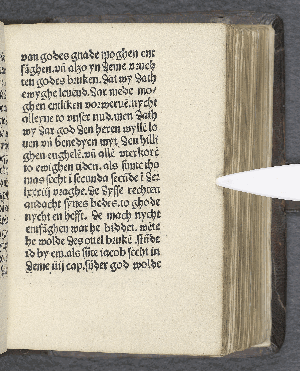 van godes gnade moghen ent
fāghen. vñ alzo yn deme vrech
ten godes bruken. Dat wy dath
ewyghe leuend. Dat mede mo-
ghen entliken vorwerue. nycht
alleyne to vnser nud. men dath
wy dar god den heren wylle lo
uen vñ benedyen myt den hilli
ghen enghelē. vñ alle vterkorē
to ewighen tiden. als sunte tho
mas secht ī secunda secūde ī der
lxxxiij vraghe. de dysse rechten
andacht synes bedes. to ghode
nycht en hefft. de mach nycht
entfāghen wat he biddet. wēte
he wolde des ouel brukē. stūde
id by em. als sūte iacob secht in
deme iiij cap. sūder god wolde